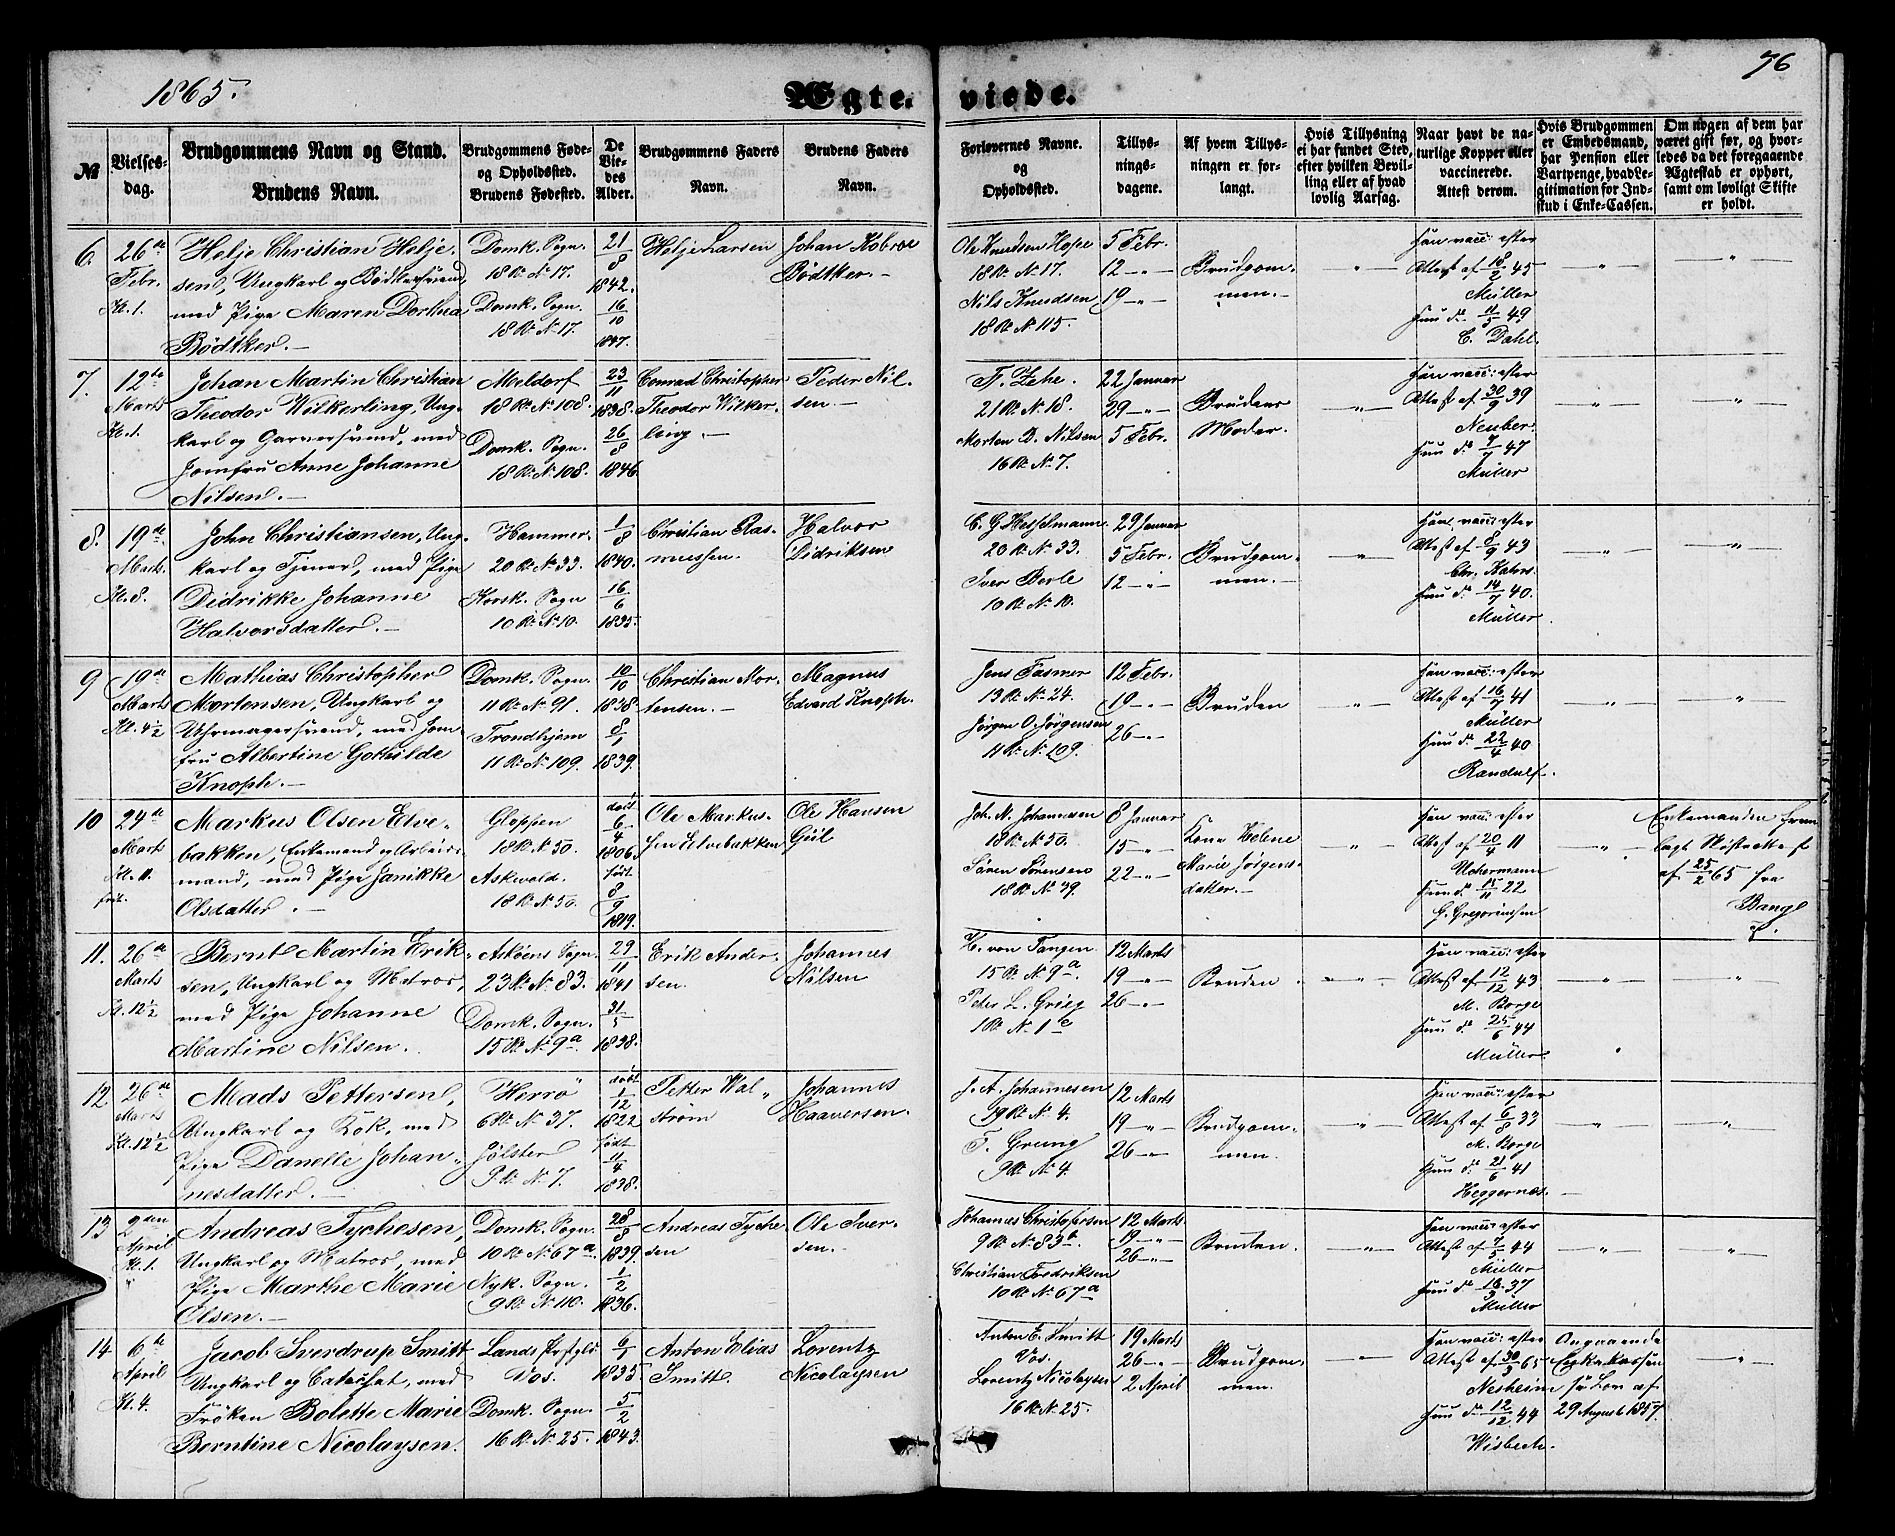 1865.
Ægte-
viede.
76
№
Vielses-
dag.
Brudgommens Navn og Stand.
Brudens Navn.
Brudgommens Føde-
og Opholdssted.
Brudens Fødested.
De
Vie-
des
Alder.
Brudgommens Faders
Navn.
Brudens Faders
Navn.
Forlovernes Navne.
og
Opholdssted.
Tillys-
nings-
dagene.
Af hvem Tillys-
ningen er for-
langt.
Hvis Tillysning
ei har fundet Sted,
efter hvilken Bevil-
ling eller af hvad
lovlig Aarsag.
Naar havt de na-
turlige Kopper eller
vaccinerede.
Attest derom.
Hvis Brudgommen
er Embedsmand,
har Pension eller
Vartpenge, hvad Le-
gitimation for Ind-
skud i Enke-Cassen.
Om nogen af dem har
været gift før, og hvor-
ledes da det foregaaende
Ægteskab er ophørt,
samt om lovligt Skifte
er holdt.
6.
26de
Febr.
Kl. 1.
Helje Christian Helje-
sen, Ungkarl og Bødkersvend,
med Pige Maren Dorthea
Bødtker.
Domk. Sogn.
18 R. N. 17.
Domk. Sogn.
18 R. N. 17.
21/8
1842.
16/10
1847.
Helje Larsen
Johan Kobroe
Bødtker.
Ole Knudsen Hope
18 R. N. 17.
Nils Knudsen
18 R. N. 115.
5 Febr.
12 - " -
19 - " -
Brudgom-
men.
- " -
Han vacc: efter
Attest af 18/2 45
Müller
Hun d. 11/5 49
C. Dahl.
- " -
- " -
7.
12te
Marts
Kl. 1.
Johan Martin Christian
Theodor Wilkerling, Ung-
karl og Garversvend, med
Jomfru Anne Johanne
Nilsen.
Meldorf
18 R. N. 108.
Domk. Sogn.
18 R. N. 108.
23/11
1838.
26/8
1846.
Conrad Christopher
Theodor Wilker-
ling.
Peder Nil-
sen.
F. Zehe.
21 R. N. 18.
Morten D. Nilsen
16 R. N. 7.
22 Januar
29 - " -
5 Febr.
Brudens
Moder.
- " -
Han vacc: efter
Attest af 30/9 39
Neuber.
Hun d. 7/7 47
Müller
- " -
- " -
8.
19de
Marts.
Kl. 8.
John Christiansen, Ung-
karl og Tjener, med Pige
Didrikke Johanne
Halvorsdatter.
Hammer.
20 R. N. 33.
Korsk. Sogn
10 R. N. 10.
1/8
1840.
16/6
1835.
Christian Ras-
mussen.
Halvor
Didriksen
C. G. Hesselmann.
20 R. N. 33.
Iver Berle
10 R. N. 10.
29 Januar
5 Febr.
12 - " -
Brudgom-
men.
- " -
Han vacc: efter
Attest af 8/9 43
Chr. Kahrs.
Hun d. 14/7 40.
Müller.
- " -
- " -
9
19de
Marts
Kl. 4½
Mathias Christopher
Mortensen, Ungkarl og
Uhrmagersvend, med Jom-
fru Albertine Gothilde
Knoph.
Domk. Sogn.
11 R. N. 91.
Trondhjem
11 R. N. 109.
10/10
1838
8/1
1839.
Christian Mor-
tensen.
Magnus
Edvard Knoph.
Jens Fasmer
13 R. N. 24.
Jørgen O. Jørgensen
11 R. N. 109.
12 Febr.
19 - " -
26 - " -
Bruden
- " -
Han vacc: efter
Attest af 16/7 41
Müller
Hun d. 22/4 40
Randulf.
- " -
- " -
10
24de
Marts
Kl. 11.
frit.
Markus Olsen Elve-
bakken, Enkemand og Arbeids-
mand, med Pige Janikke
Olsdatter.
Gloppen
18 R. N. 50.
Askvold.
18 R. N. 50.
døbt
6/4
1806.
født
8/9
1819.
Ole Markus-
sen Elvebakken
Ole Hansen
Giil
Joh. N. Johannesen
18 R. N. 50.
Søren Sørensen
18 R. N. 39.
8 Januar
15 - " -
22 - " -
Kone Helene
Marie Jørgens-
datter.
- " -
Han vacc: efter
Attest af 20/4 11
Uchermann
Hun d. 15/11 22
G. Gregoriussen
- " -
Enkemanden frem-
lagt Skifteattest
af 25/2 65 fra
Bang
11.
26de
Marts
Kl. 12½
Bernt Martin Erik-
sen, Ungkarl og Matros,
med Pige Johanne
Martine Nilsen.
Askøens Sogn.
23 R. N. 83.
Domk. Sogn.
15 R. N. 9a.
29/11
1841
31/5
1838.
Erik Ander-
sen.
Johannes
Nilsen
H. von Tangen
15 R. N. 9a.
Peter L. Grieg
1 R. N. 1c
12 Marts
19 - " -
26 - " -
Bruden
- " -
Han vacc: efter
Attest af 12/12 43
M. Borge
Hun d. 25/6 44
Müller
- " -
- " -
12
26de
Marts
Kl. 12½
Mads Pettersen,
Ungkarl og Kok, med
Pige Danelle Johan-
nesdatter.
Herrø
6 R. N. 37.
Jølster
9 R. N. 7.
døbt
1/12
1822
født
11/4
1838.
Petter Wal-
strøm
Johannes
Haaversen.
J. A. Johannesen
19 R. N. 4.
T. Grung
9 R. N. 4.
12 Marts
19 - " -
26 - " -
Brudgom-
men.
- " -
Han vacc: efter
Attest af 6/8 33
M. Borge
Hun d. 21/6 41
Heggernæs.
- " -
- " -
13
2den
April
Kl. 1.
Andreas Tychesen,
Ungkarl og Matros, med
Pige Marthe Marie
Olsen.
Domk. Sogn.
10 R. N. 67a.
Nyk. Sogn.
9 R. N. 110.
28/8
1839.
1/2
1836.
Andreas Tyche-
sen
Ole Iver-
sen.
Johannes Christophersen
9 R. N. 83b.
Christian Fredriksen
10 R. N. 67a
12 Marts
19 - " -
26 - " -
Bruden.
- " -
Han vacc: efter
Attest af 7/5 44
Müller
Hun d. 16/3 37
Müller
- " -
- " -
14
6te
April
Kl. 4.
Jacob Sverdrup Smitt
Ungkarl og Catechet, med
Frøken Bolette Marie
Berntine Nicolaysen.
Lands Præstgld
Vos.
Domk. Sogn.
16 R. N. 25.
6/1
1835
5/2
1843.
Anton Elias
Smitt.
Lorentz
Nicolaysen
Anton E. Smitt
Vos.
Lorentz Nicolaysen
16 R. N. 25.
19 Marts
26 - " -
2 April
Brudgom-
men.
- " -
Han vacc: efter
Attest af 30/3 65
Nesheim
Hun d. 12/12 44
Wisbech.
Angaaende
Enkekassen
se Lov af
29 August 1857.
- " -